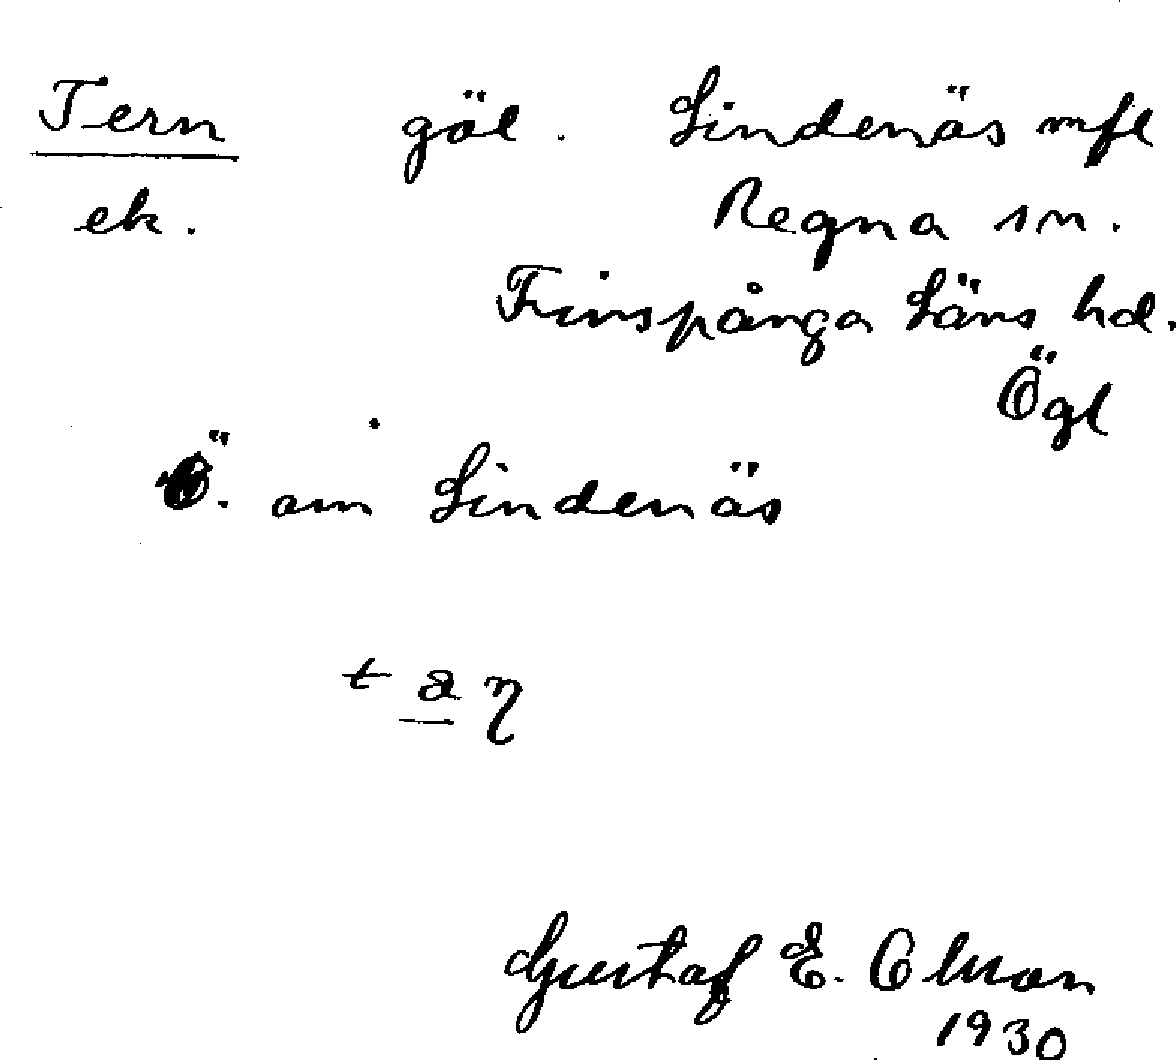 Tern göl. Lindenäs mfl
ek. Regna sn.
Finspånga läns hd.
Ögl
Ö. om Lindenäs
Gustaf E. Olson
1930